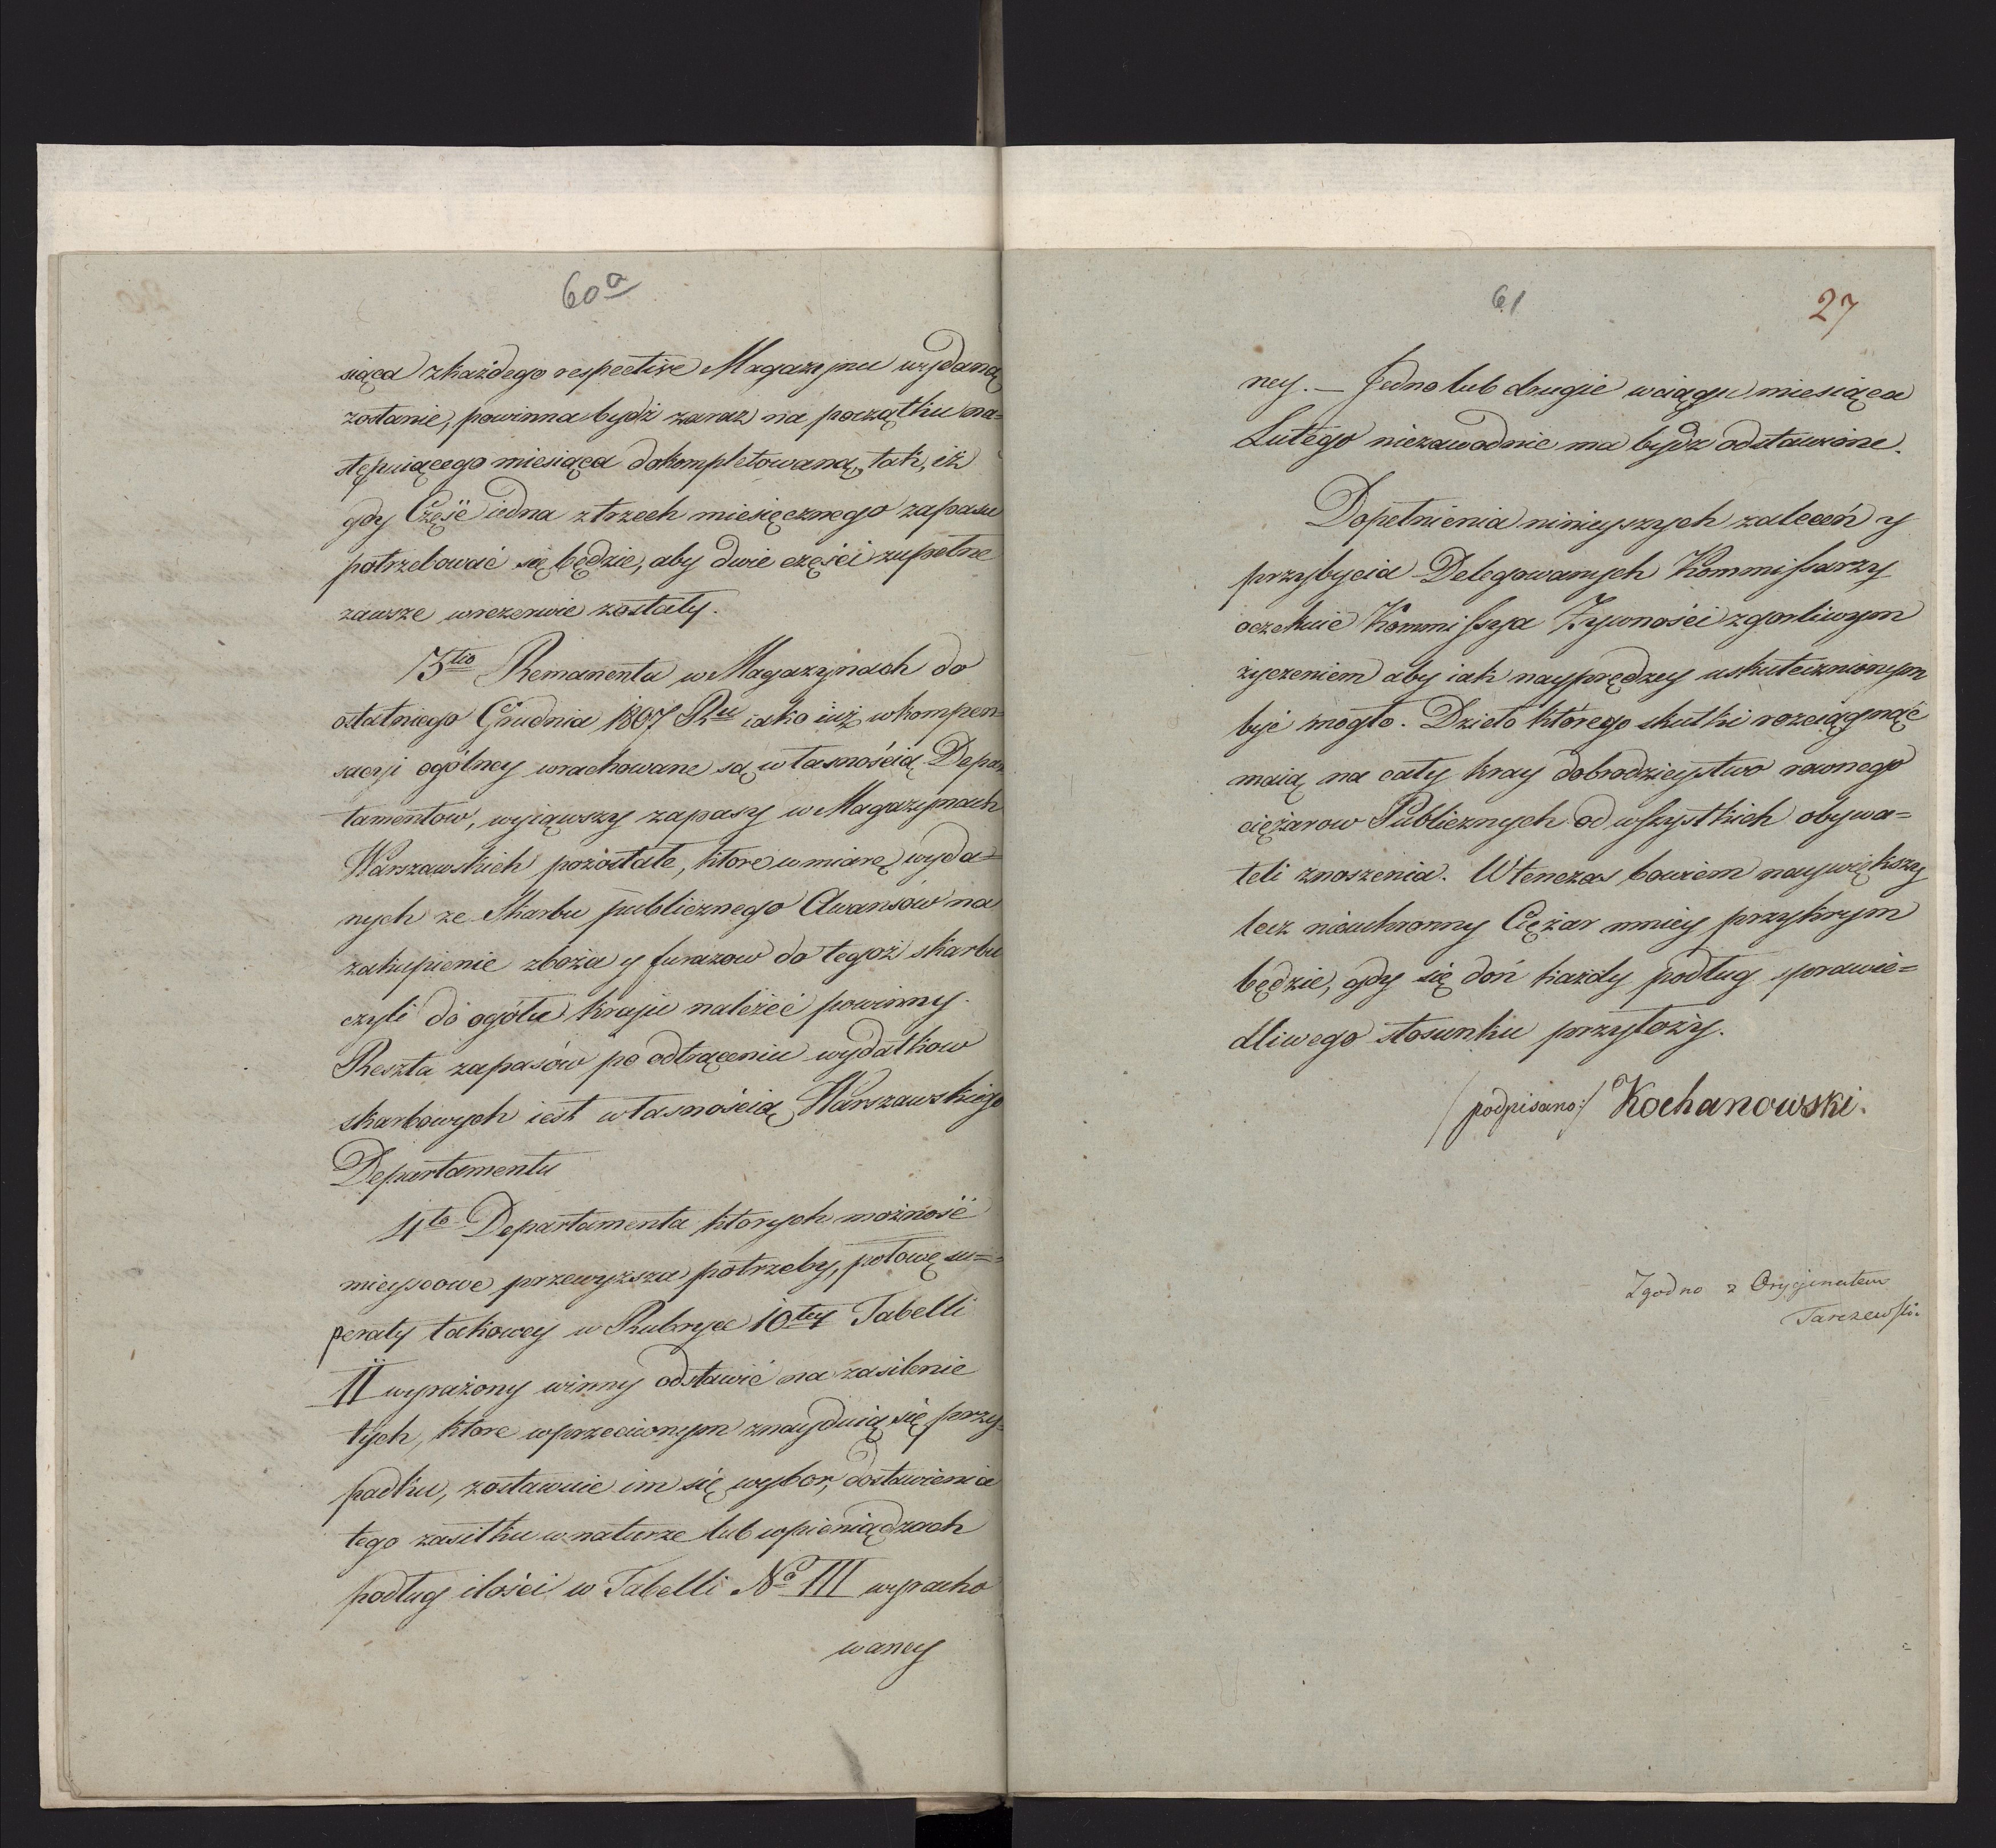 60a
siąca zkażdego respective Magazynu wydaną
zostanie, powinna bydź zaraz na początku na=
stępuiącego miesiąca dokompletowaną, tak, iż
gdy Część iedna ztrzech miesięcznego zapasu
potrzebować się będzie, aby dwie części zupełne
zawsze wrezerwie zostały.
3tio Remanenta w Magazynach do
ostatniego Grudnia 1807 Ru iako iuż wkompen=
sacyi ogólney wrachowane są własnością Depar
tamentow, wyiąwszy zapasy w Magazynach
Warszawskich pozostałe, ktore w miarę wyda=
nych ze Skarbu publicznego Awansów na
zakupienie zboża y furazow do tegoż skarbu
czyli do ogółu kraju należeć powinny.
Reszta zapasów po odtrąceniu wydatkow
skarbowych iest własnością Warszawskiego
Departamentu
4to Departamenta ktorych możność
mieyscowe przewyższa potrzeby, połowę su=
peraty takowey w Rubryce 10tey Tabelli
II wyrażony winny odstawić na zasilenie
tych, ktore wprzeciwnym znayduią się przy=
padku, zostawuie im się wybor, dostawienia
tego zasiłku w naturze lub wpieniądzach
podług ilości w Tabelli No III wyracho
waney
61
27
ney. — Jedno lub drugie wciągu miesiąca
Lutego niezawodnie ma bydz odstawione.
Dopełnienia ninieyszych zaleceń y
przybycia Delegowanych Kommissarzy
oczekuie Kommissya Żywności zgorliwym
życzeniem aby iak nayprędzey uskutecznionym
być mogło. Dzieło którego skutki rozciągnąć
maią na cały kray dobrodzieystwo rownego
ciężarow Publicznych od wszystkich obywa=
teli znoszenia. Wtenczas bowiem naywiększy
lecz nieuchronny Ciężar mniey przykrym
będzie, gdy się doń każdy podług sprawie=
dliwego stosunku przyłoży.
/podpisano:/ Kochanowski.
Zgodno z Oryginałem
Tarczewski